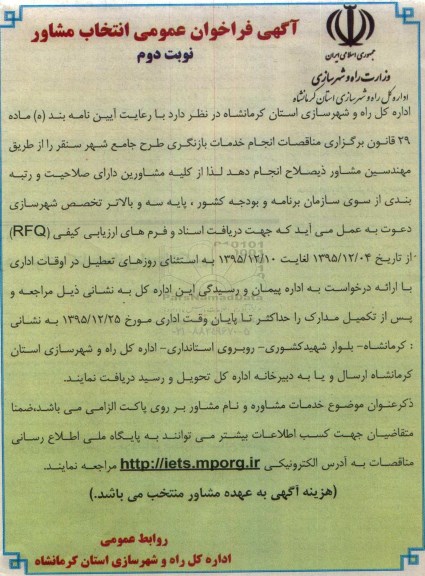 آگهی فراخوان عمومی انتخاب مشاور
نوبت دوم
جمهوری اسلامی ایران
وزارت راه و شهرسازی
اداره کل راه و شهرسازی استان کرمانشاه
اداره کل راه و شهرسازی استان کرمانشاه در نظر دارد با رعایت آیین نامه بند (ه) ماده
۲۹ قانون برگزاری مناقصات انجام خدمات بازنگری طرح جامع شهر سنقر را از طریق
مهندسین مشاور ذیصلاح انجام دهد لذا از کلیه مشاورین دارای صلاحیت و رتبه
بندی از سوی سازمان برنامه و بودجه کشور ، پایه سه و بالاتر تخصص شهرسازی
دعوت به عمل می آید که جهت دریافت اسناد و فرم های ارزیابی کیفی (RFQ)
از تاریخ ۱۳۹۵/۱۲/۰۴ لغایت ۱۳۹۵/۱۲/۱۰ به استثنای روزهای تعطیل در اوقات اداری
با ارائه درخواست به اداره پیمان و رسیدگی این اداره کل به نشانی ذیل مراجعه و
پس از تکمیل مدارک را حداکثر تا پایان وقت اداری مورخ ۱۳۹۵/۱۲/۲۵ به نشانی
: کرمانشاه- بلوار شهیدکشوری- روبروی استانداری- اداره کل راه و شهرسازی استان
کرمانشاه ارسال و یا به دبیرخانه اداره کل تحویل و رسید دریافت نمایند.
ذکرعنوان موضوع خدمات مشاوره و نام مشاور بر روی پاکت الزامی می باشد،ضمنا
متقاضیان جهت کسب اطلاعات بیشتر می توانند به پایگاه ملی اطلاع رسانی
مناقصات به آدرس الکترونیکی http://iets.mporg.ir مراجعه نمایند.
(هزینه آگهی به عهده مشاور منتخب می باشد.)
روابط عمومی
اداره کل راه و شهرسازی استان کرمانشاه